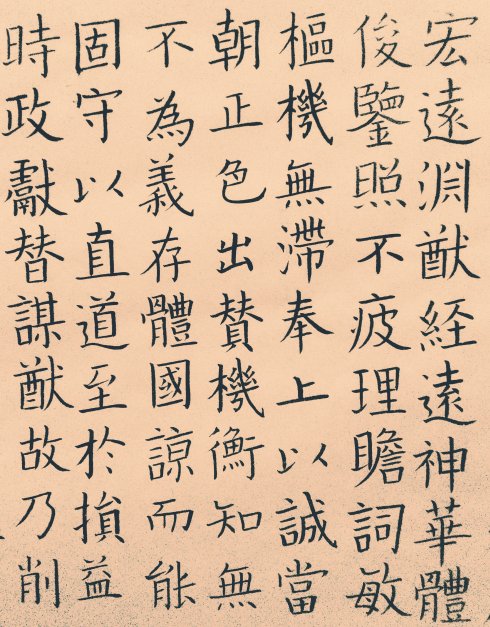 宏遠淵猷経遠神華體
俊鑒照不疲理瞻詞敏
樞機無滯奉上以誠當
朝正色出賛機衡知無
不為義存體國諒而能
固守以直道至於損益
時政獻替謀猷故乃削